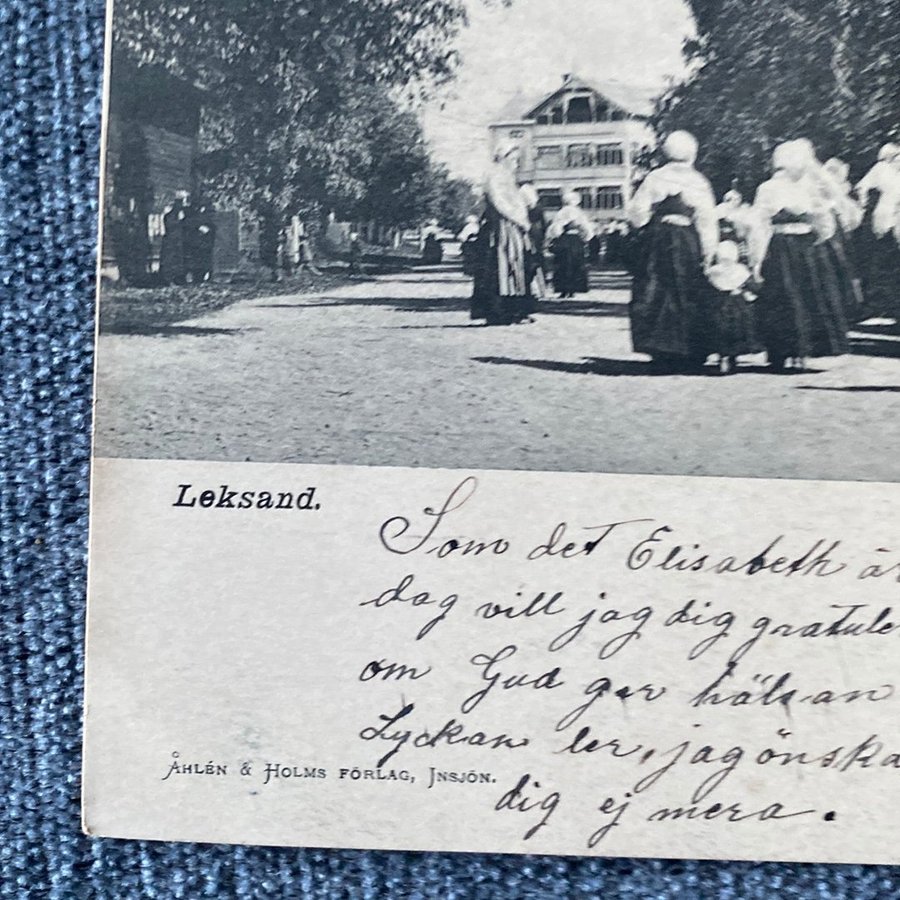 Leksand.
Som det Elisabeth är
dag vill jag dig gratule
om Gud ger hälsan
Lyckan ler, jag önska
dig ej mera.
ÅHLÉN & HOLMS FÖRLAG, JNSJÖN.